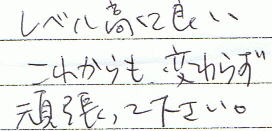 レベル高くて良い
これからも変わらず
頑張って下さい。